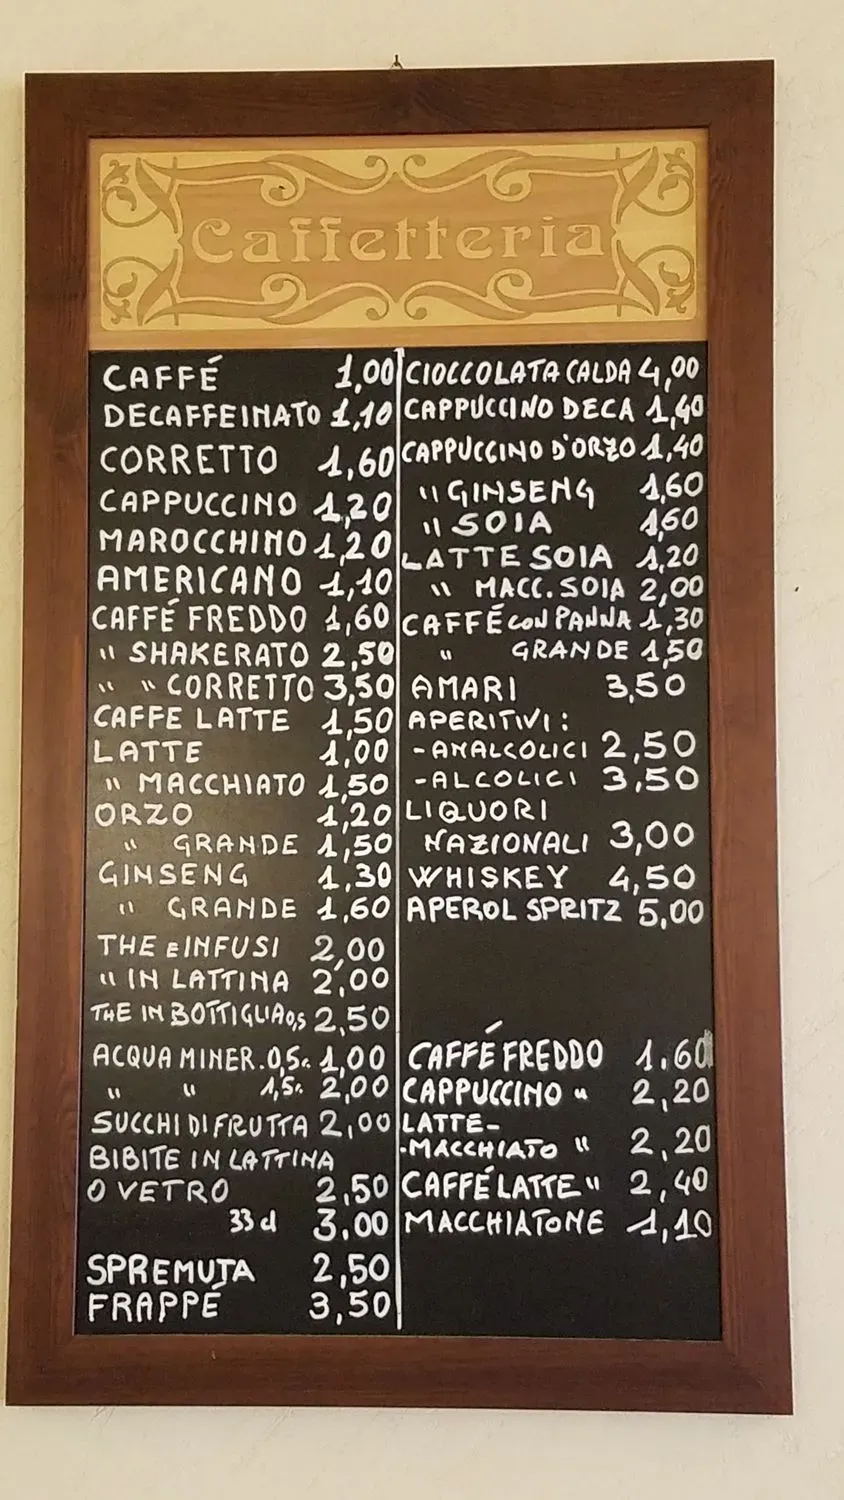 Caffetteria
CAFFÉ 1,00
DECAFFEINATO 1,10
CORRETTO 1,60
CAPPUCCINO 1,20
MAROCCHINO 1,20
AMERICANO 1,10
CAFFÉ FREDDO 1,60
" SHAKERATO 2,50
" " CORRETTO 3,50
CAFFE LATTE 1,50
LATTE 1,00
" MACCHIATO 1,50
ORZO 1,20
" GRANDE 1,50
GINSENG 1,30
" GRANDE 1,60
THE E INFUSI 2,00
" IN LATTINA 2,00
THE IN BOTTIGLIA 0,5 2,50
ACQUA MINER. 0,5L. 1,00
" " 1,5L. 2,00
SUCCHI DI FRUTTA 2,00
BIBITE IN LATTINA
O VETRO 2,50
33 cl 3,00
SPREMUTA 2,50
FRAPPÉ 3,50
CIOCCOLATA CALDA 4,00
CAPPUCCINO DECA 1,40
CAPPUCCINO D'ORZO 1,40
" GINSENG 1,60
" SOIA 1,60
LATTE SOIA 1,20
" MACC. SOIA 2,00
CAFFÉ CON PANNA 1,30
" GRANDE 1,50
AMARI 3,50
APERITIVI:
-ANALCOLICI 2,50
-ALCOLICI 3,50
LIQUORI
NAZIONALI 3,00
WHISKEY 4,50
APEROL SPRITZ 5,00
CAFFÉ FREDDO 1,60
CAPPUCCINO " 2,20
LATTE-
-MACCHIATO " 2,20
CAFFÉLATTE " 2,40
MACCHIATONE 1,10